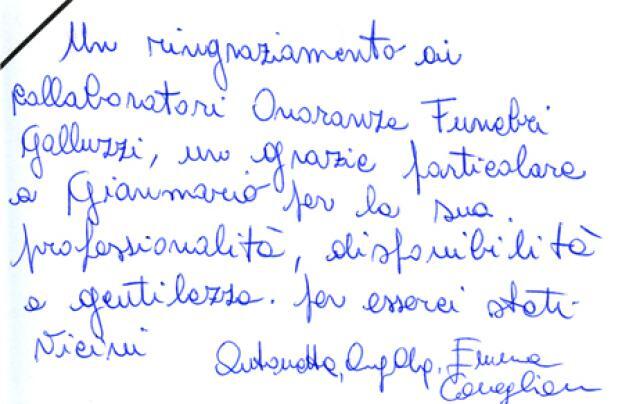 Un ringraziamento ai
collaboratori Onoranze Funebri
Galluzzi, un grazie particolare
a Gianmario per la sua
professionalità, disponibilità
e gentilezza. per esserci stati
Vicini
Antonetta, Emma